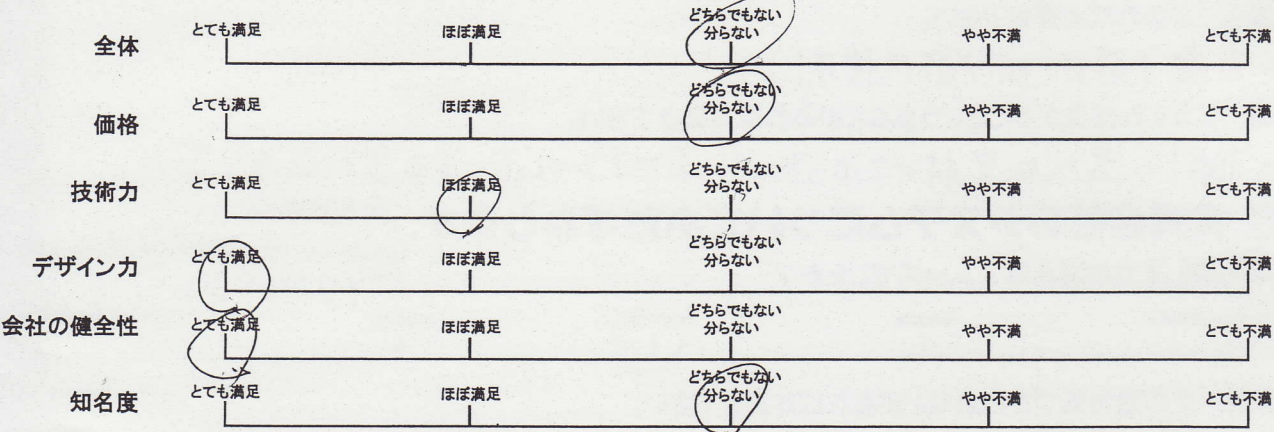 全体 とても満足 ほぼ満足 どちらでもない 分らない やや不満 とても不満
価格 とても満足 ほぼ満足 どちらでもない 分らない やや不満 とても不満
技術力 とても満足 ほぼ満足 どちらでもない 分らない やや不満 とても不満
デザイン力 とても満足 ほぼ満足 どちらでもない 分らない やや不満 とても不満
会社の健全性 とても満足 ほぼ満足 どちらでもない 分らない やや不満 とても不満
知名度 とても満足 ほぼ満足 どちらでもない 分らない やや不満 とても不満